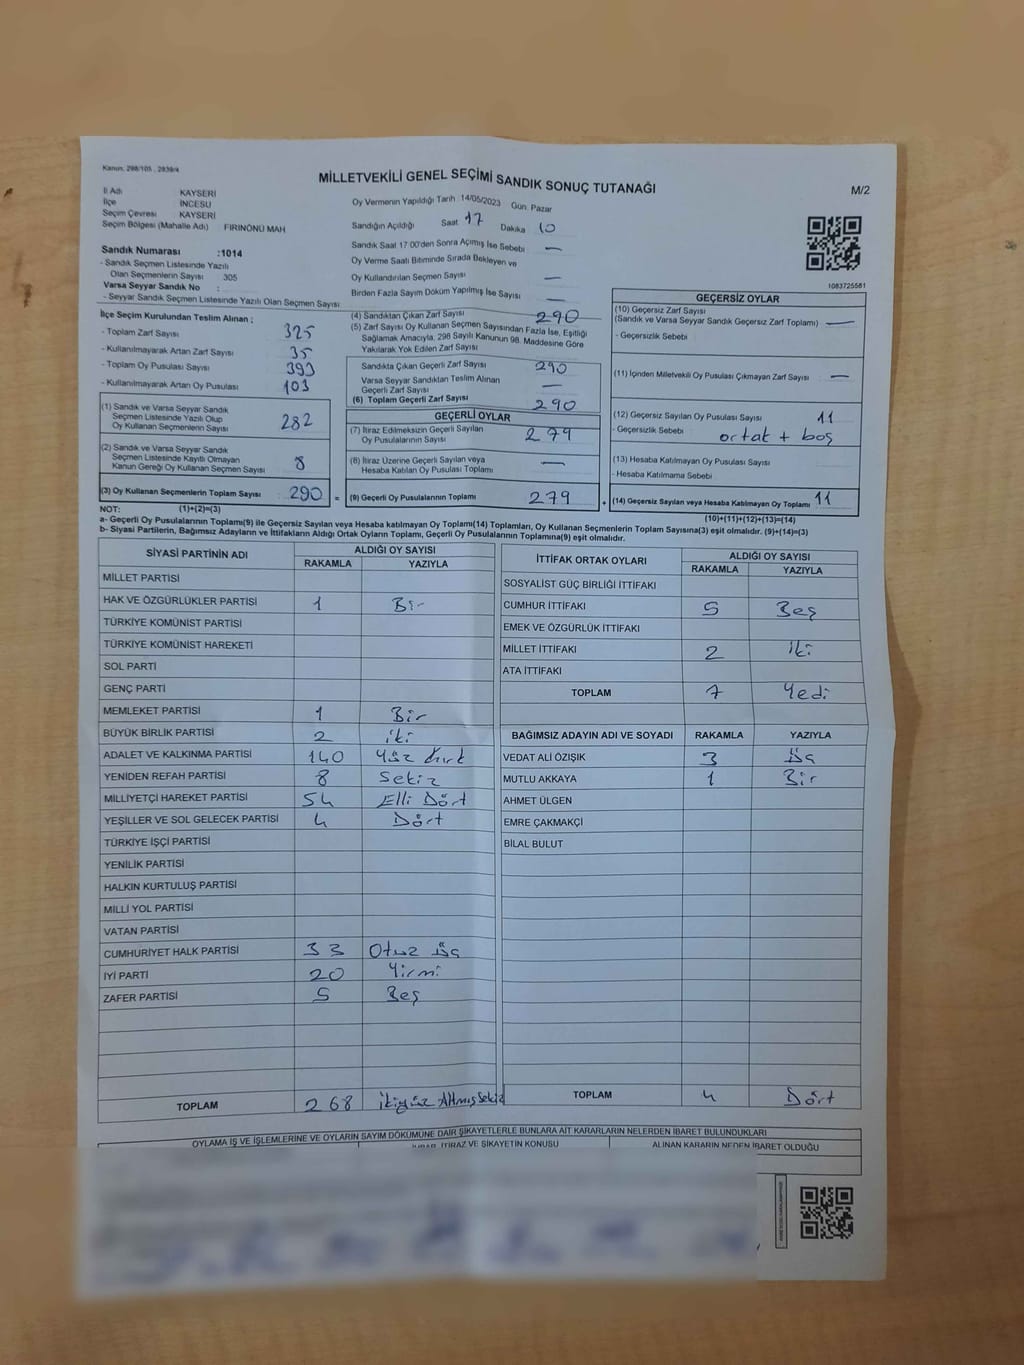 Kanun. 298/105 , 2839/4
MİLLETVEKİLİ GENEL SEÇİMİ SANDIK SONUÇ TUTANAĞI
M/2
İl Adı KAYSERİ
İlçe İNCESU
Seçim Çevresi KAYSERİ
Seçim Bölgesi (Mahalle Adı) FIRINÖNÜ MAH
Sandık Numarası :1014
- Sandık Seçmen Listesinde Yazılı
Olan Seçmenlerin Sayısı : 305
Varsa Seyyar Sandık No :
- Seyyar Sandık Seçmen Listesinde Yazılı Olan Seçmen Sayısı
Oy Vermenin Yapıldığı Tarih : 14/05/2023 Gün: Pazar
Sandığın Açıldığı Saat 17 Dakika 10
Sandık Saat 17:00'den Sonra Açılmış İse Sebebi —
Oy Verme Saati Bitiminde Sırada Bekleyen ve
Oy Kullandırılan Seçmen Sayısı —
Birden Fazla Sayım Döküm Yapılmış İse Sayısı —
1083725581
İlçe Seçim Kurulundan Teslim Alınan ;
- Toplam Zarf Sayısı 325
- Kullanılmayarak Artan Zarf Sayısı 35
- Toplam Oy Pusulası Sayısı 393
- Kullanılmayarak Artan Oy Pusulası 103
(1) Sandık ve Varsa Seyyar Sandık
Seçmen Listesinde Yazılı Olup
Oy Kullanan Seçmenlerin Sayısı 282
(2) Sandık ve Varsa Seyyar Sandık
Seçmen Listesinde Kayıtlı Olmayan
Kanun Gereği Oy Kullanan Seçmen Sayısı 8
(3) Oy Kullanan Seçmenlerin Toplam Sayısı 290 =
(4) Sandıktan Çıkan Zarf Sayısı 290
(5) Zarf Sayısı Oy Kullanan Seçmen Sayısından Fazla İse, Eşitliği
Sağlamak Amacıyla, 298 Sayılı Kanunun 98. Maddesine Göre
Yakılarak Yok Edilen Zarf Sayısı
Sandıkta Çıkan Geçerli Zarf Sayısı 290
Varsa Seyyar Sandıktan Teslim Alınan
Geçerli Zarf Sayısı —
(6) Toplam Geçerli Zarf Sayısı 290
GEÇERLİ OYLAR
(7) İtiraz Edilmeksizin Geçerli Sayılan
Oy Pusulalarının Sayısı 279
(8) İtiraz Üzerine Geçerli Sayılan veya
Hesaba Katılan Oy Pusulası Toplamı —
(9) Geçerli Oy Pusulalarının Toplamı 279 +
GEÇERSİZ OYLAR
(10) Geçersiz Zarf Sayısı
(Sandık ve Varsa Seyyar Sandık Geçersiz Zarf Toplamı) —
- Geçersizlik Sebebi
(11) İçinden Milletvekili Oy Pusulası Çıkmayan Zarf Sayısı —
(12) Geçersiz Sayılan Oy Pusulası Sayısı 11
- Geçersizlik Sebebi ortak + boş
(13) Hesaba Katılmayan Oy Pusulası Sayısı
- Hesaba Katılmama Sebebi
(14) Geçersiz Sayılan veya Hesaba Katılmayan Oy Toplamı 11
NOT: (1)+(2)=(3) (10)+(11)+(12)+(13)=(14)
a- Geçerli Oy Pusulalarının Toplamı(9) ile Geçersiz Sayılan veya Hesaba katılmayan Oy Toplamı(14) Toplamları, Oy Kullanan Seçmenlerin Toplam Sayısına(3) eşit olmalıdır. (9)+(14)=(3)
b- Siyasi Partilerin, Bağımsız Adayların ve İttifakların Aldığı Ortak Oyların Toplamı, Geçerli Oy Pusulalarının Toplamına(9) eşit olmalıdır.
SİYASİ PARTİNİN ADI ALDIĞI OY SAYISI
RAKAMLA YAZIYLA
MİLLET PARTİSİ
HAK VE ÖZGÜRLÜKLER PARTİSİ 1 Bir
TÜRKİYE KOMÜNİST PARTİSİ
TÜRKİYE KOMÜNİST HAREKETİ
SOL PARTİ
GENÇ PARTİ
MEMLEKET PARTİSİ 1 Bir
BÜYÜK BİRLİK PARTİSİ 2 iki
ADALET VE KALKINMA PARTİSİ 140 Yüz Kırk
YENİDEN REFAH PARTİSİ 8 Sekiz
MİLLİYETÇİ HAREKET PARTİSİ 54 Elli Dört
YEŞİLLER VE SOL GELECEK PARTİSİ 4 Dört
TÜRKİYE İŞÇİ PARTİSİ
YENİLİK PARTİSİ
HALKIN KURTULUŞ PARTİSİ
MİLLİ YOL PARTİSİ
VATAN PARTİSİ
CUMHURİYET HALK PARTİSİ 33 Otuz Üç
İYİ PARTİ 20 Yirmi
ZAFER PARTİSİ 5 Beş
TOPLAM 268 İkiyüz Altmış Sekiz
İTTİFAK ORTAK OYLARI ALDIĞI OY SAYISI
RAKAMLA YAZIYLA
SOSYALİST GÜÇ BİRLİĞİ İTTİFAKI
CUMHUR İTTİFAKI 5 Beş
EMEK VE ÖZGÜRLÜK İTTİFAKI
MİLLET İTTİFAKI 2 İki
ATA İTTİFAKI
TOPLAM 7 Yedi
BAĞIMSIZ ADAYIN ADI VE SOYADI RAKAMLA YAZIYLA
VEDAT ALİ ÖZIŞIK 3 Üç
MUTLU AKKAYA 1 Bir
AHMET ÜLGEN
EMRE ÇAKMAKÇİ
BİLAL BULUT
TOPLAM 4 Dört
OYLAMA İŞ VE İŞLEMLERİNE VE OYLARIN SAYIM DÖKÜMÜNE DAİR ŞİKAYETLERLE BUNLARA AİT KARARLARIN NELERDEN İBARET BULUNDUKLARI
İTİRAZ VE ŞİKAYETİN KONUSU ALINAN KARARIN NEDEN İBARET OLDUĞU